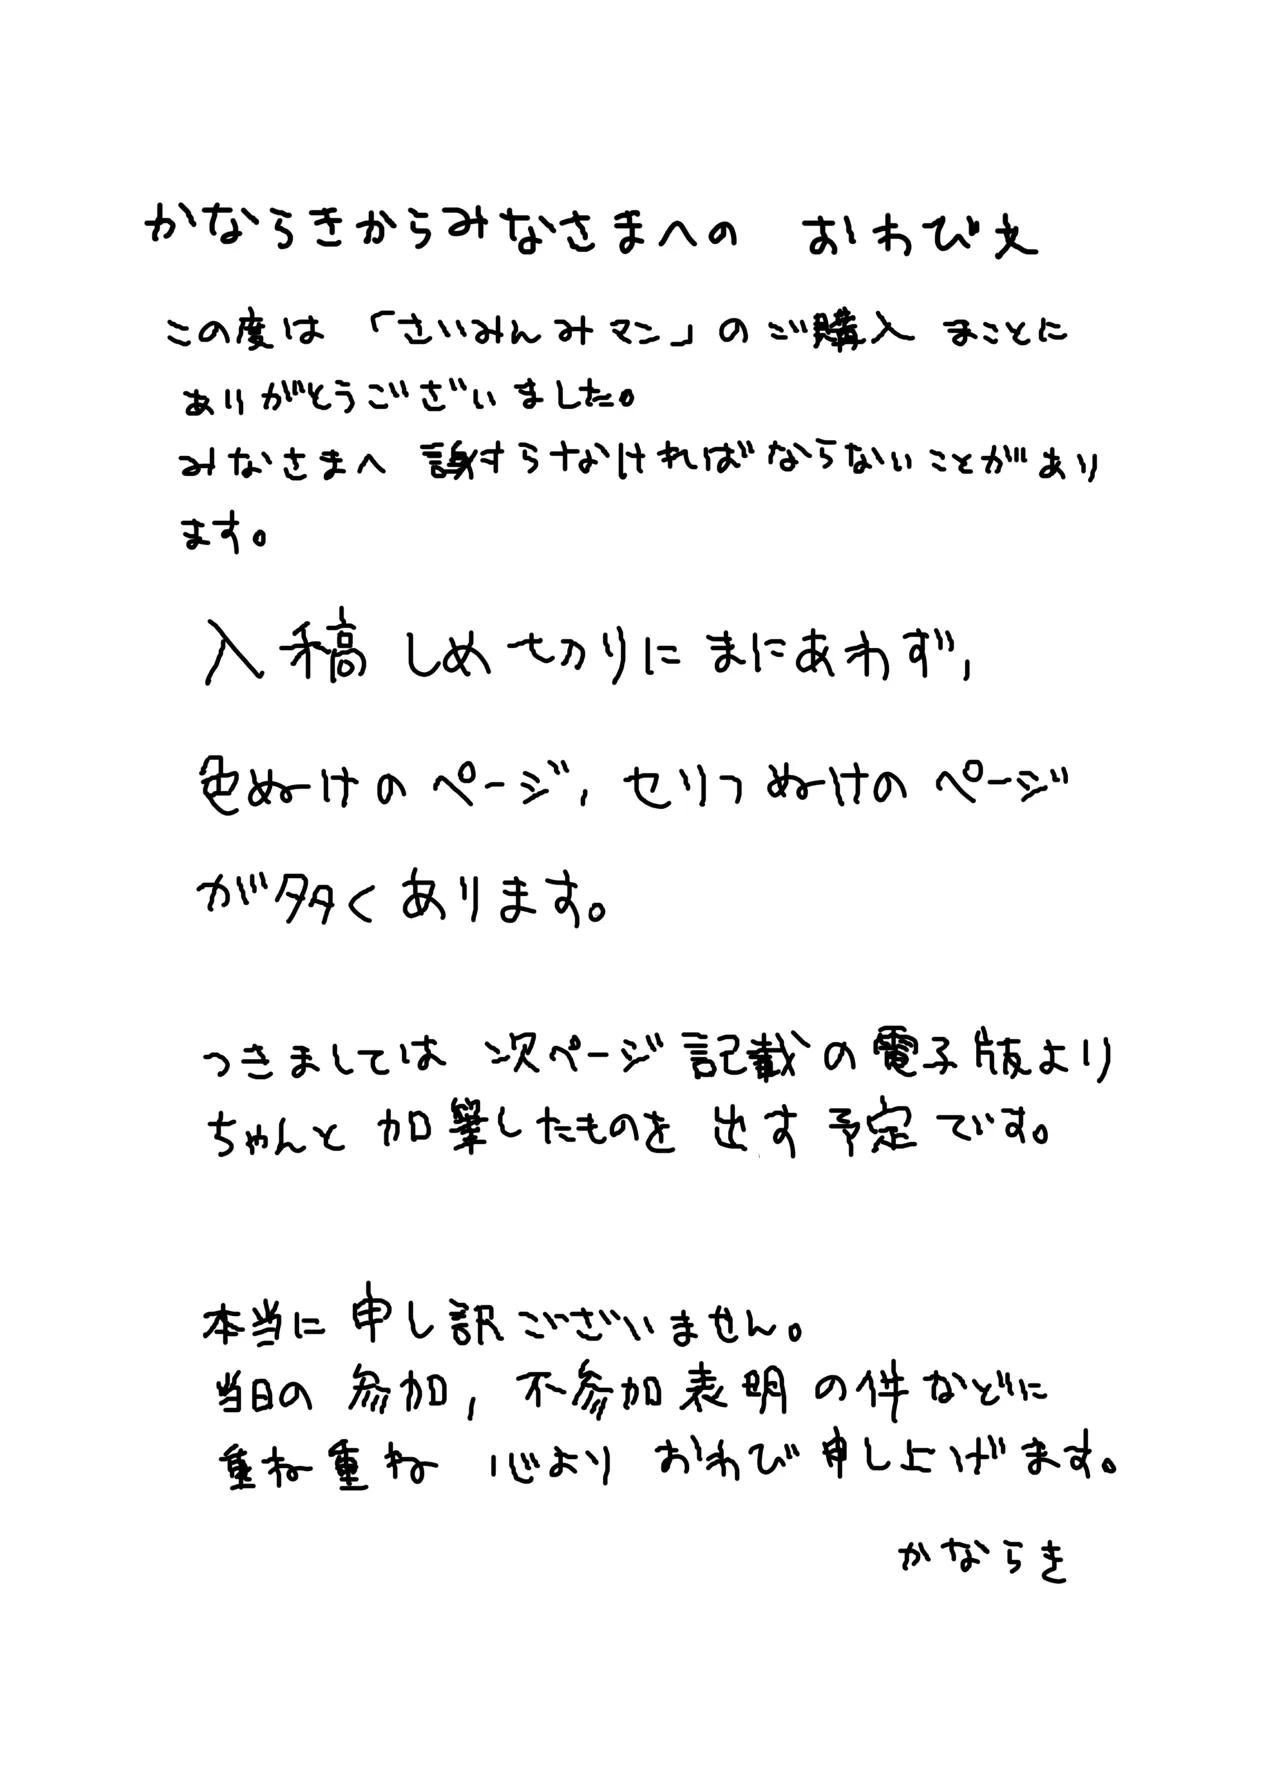 かならきからみなさまへの おわび文
この度は 「さいみんみマン」のご購入 まことに
ありがとうございました。
みなさまへ 謝すらなければならないことがあり
ます。
入稿しめ切りにまにあわず,
色ぬけのページ, セリフぬけのページ
が多くあります。
つきましては 次ページ記載の電子版より
ちゃんと加筆したものを 出す予定です。
本当に申し訳ございません。
当日の参加, 不参加表明の件などに
重ね重ね 心より おわび申し上げます。
かならき